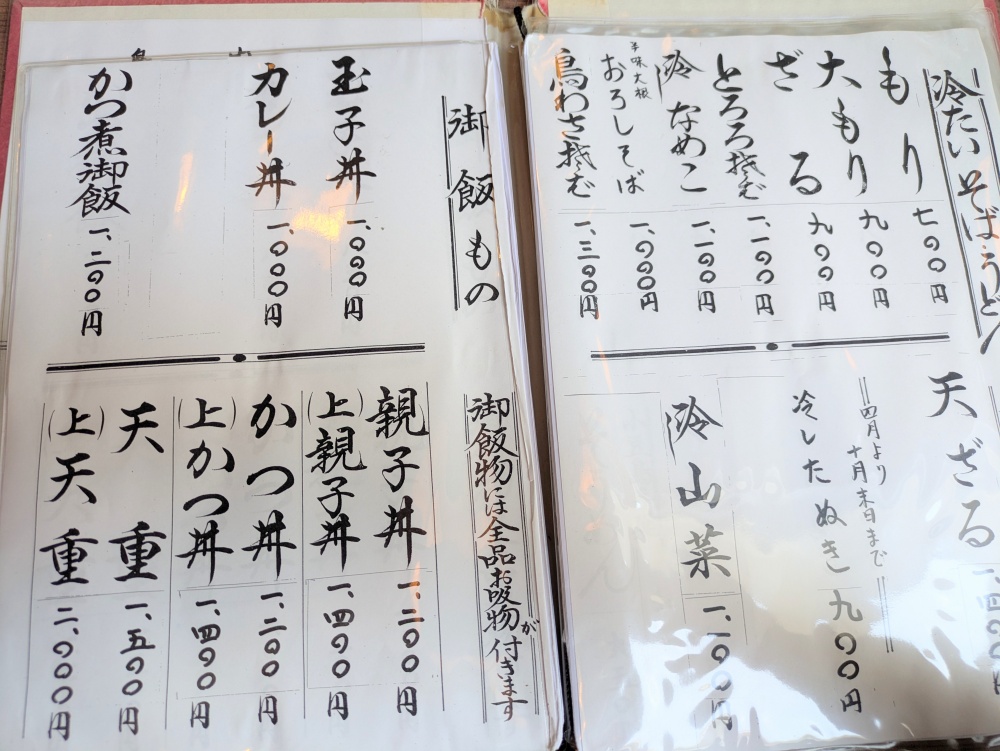 冷たいそばうどん
もり 七〇〇円
大もり 九〇〇円
ざる 九〇〇円
とろろ 一、一〇〇円
冷なめこ 一、一〇〇円
辛味大根
おろしそば 一、〇〇〇円
鳥わさ 一、三〇〇円
天ざる
四月より
十月末日まで
冷したぬき 九〇〇円
冷山菜 一、一〇〇円
御飯もの
玉子丼 一、〇〇〇円
カレー丼 一、〇〇〇円
かつ煮御飯 一、二〇〇円
御飯物には全品お吸物が付きます
親子丼 一、二〇〇円
(上)親子丼 一、四〇〇円
かつ丼 一、二〇〇円
(上)かつ丼 一、四〇〇円
天重 一、五〇〇円
(上)天重 二、〇〇〇円